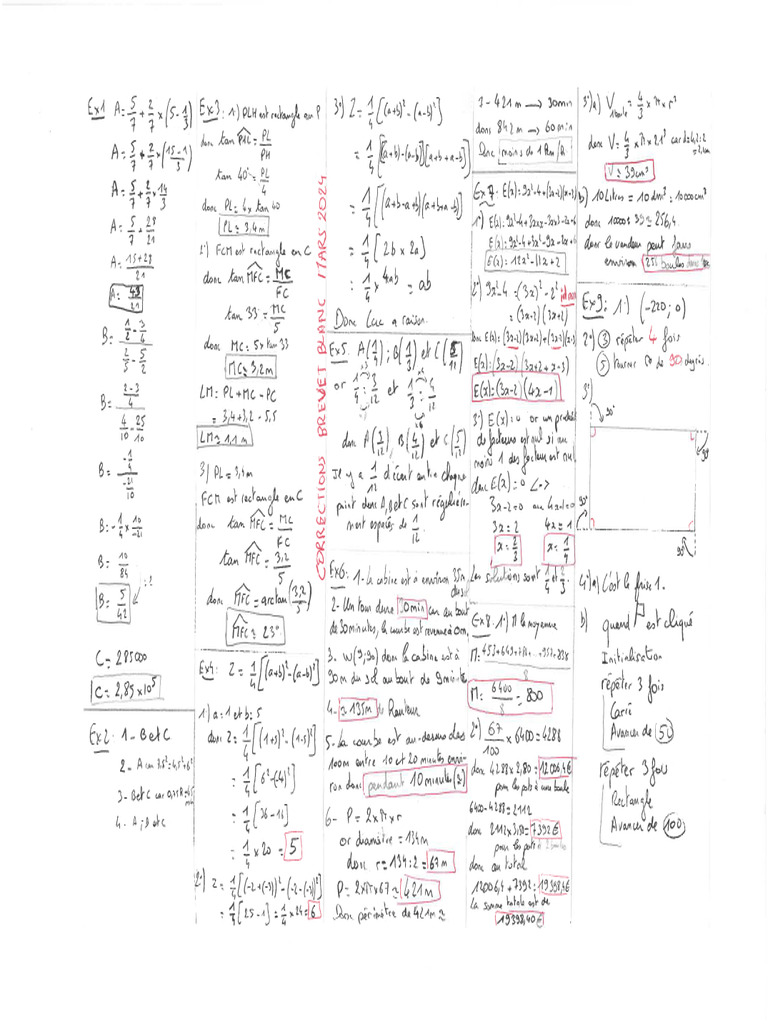 Ex1 A = 5/7 + 2/7 × (5 - 1/3)
A = 5/7 + 2/7 × (15-1/3)
A = 5/7 + 2/7 × 14/3
A = 5/7 + 28/21
A = 15+28/21
A = 43/21
B = (1/2 - 3/4)/(2/5 - 5/2)
B = (2-3/4)/(4/10 - 25/10)
B = (-1/4)/(-21/10)
B = -1/4 × 10/-21
B = 10/84
B = 5/42
C = 285000
C = 2,85 × 10⁵
Ex2: 1 - B et C
2 - A car 7,5² = 4,5² + 6²
3 - B et C
4 - A; B et C
Ex3: 1) PLH est rectangle en P
donc tan PHL = PL/PH
tan 40° = PL/4
donc PL = 4 × tan 40
PL ≈ 3,4m
2) FCM est rectangle en C
donc tan MFC = MC/FC
tan 33° = MC/5
donc MC = 5 × tan 33
MC ≈ 3,2m
LM = PL + MC - PC
= 3,4 + 3,2 - 5,5
LM ≈ 1,1m
3) PL = 3,4m
FCM est rectangle en C
donc tan MFC = MC/FC
tan MFC = 3,2/5
donc MFC = arctan(3,2/3)
MFC ≈ 23°
Ex4: Z = 1/4 [(a+b)² - (a-b)²]
1) a = 1 et b = 5
donc Z = 1/4 [(1+5)² - (1-5)²]
= 1/4 [6² - (4)²]
= 1/4 [36 - 16]
= 1/4 × 20 = 5
2) Z = 1/4 [(-2+(-3))² - (-2-(-3))²]
= 1/4 [25 - 1] = 1/4 × 24 = 6
CORRECTIONS BREVET BLANC MARS 2024
3°) Z = 1/4 [(a+b)² - (a-b)²]
= 1/4 [((a+b) - (a-b))(a+b+a-b)]
= 1/4 [(a+b-a+b)(a+b+a-b)]
= 1/4 [2b × 2a]
= 1/4 × 4ab = ab
Donc Luc a raison.
Ex5: A(1/4); B(1/3) et C(5/12)
or 1/4 = 3/12 et 1/3 = 4/12
donc A(3/12), B(4/12) et C(5/12)
Il y a 1/12 d'écart entre chaque
point donc A, B et C sont régulière-
ment espacés de 1/12
Ex6: 1 - la cabine est à environ 35m
du sol
2 - Un tour dure 30min car au bout
de 30 minutes, la courbe est revenue à 0m,
3 - W(9;90) donc la cabine est à
90m du sol au bout de 9 minutes
4 - ≈ 135m de hauteur
5 - La courbe est au-dessus de
100m entre 10 et 20 minutes envi-
ron donc pendant 10 minutes
6 - P = 2 × π × r
or diamètre = 134m
donc r = 134:2 = 67m
P = 2 × π × 67 ≈ 421m
Donc périmètre de 421m ≈
421m → 30min
donc 842m → 60min
Donc moins de 1km/h
Ex7: E(x) = 9x²-4+(3x-2)(x-3)
1°) E(x) = 9x²-4+3x²-9x-2x+6
E(x) = 9x²-4+3x²-9x-2x+6
E(x) = 12x²-11x+2
2°) 9x²-4 = (3x)²-2²
= (3x-2)(3x+2)
donc E(x) = (3x-2)(3x+2)+(3x-2)(x-3)
E(x) = (3x-2)(3x+2+x-3)
E(x) = (3x-2)(4x-1)
3°) E(x) = 0 or un produit
de facteurs est nul si au
moins 1 des facteurs est nul
donc E(x) = 0 <->
3x-2=0 ou 4x-1=0
3x=2 4x=1
x=2/3 x=1/4
Les solutions sont 1/4 et 2/3.
Ex8: 1°) M la moyenne
M = 6400/8 = 800
2°) 67/100 × 6400 = 4288
donc 4288 × 2,80 = 12006,4€
pour les pots à une boule
6400 - 4288 = 2112
donc 2112 × 3,50 = 7392€
pour les pots
donc au total
12006,4 + 7392 = 19398,4€
La somme totale est de
19398,40€
3°) a) V boule = 4/3 × π × r³
donc V = 4/3 × π × 2,1³ car d = 4,2
V ≈ 39cm³
b) 10 Litres = 10dm³ = 10000cm³
donc 10000 : 39 ≈ 256,4
donc le vendeur peut faire
environ 256 boules
Ex9: 1) (-220; 0)
2°) ③ répéter 4 fois
⑤ tourner de 90 degrés
3°)
90°
90°
90°
90°
4°) a) C'est la frise 1.
b) quand est cliqué
Initialisation
répéter 3 fois
Carré
Avancer de 50
répéter 3 fois
Rectangle
Avancer de 100